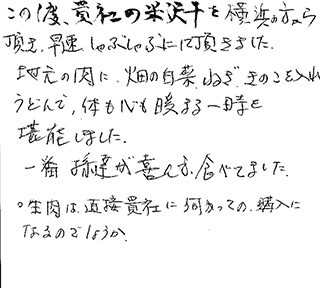 この度、貴社の米沢牛を横浜の方から
頂き、早速しゃぶしゃぶにて頂きました。
地元の肉に、畑の白菜、ねぎ、きのこを入れ
うどんで、体も心も暖まる一時を
堪能しました。
一番孫達が喜んで食べてました。
○生肉は、直接貴社に伺かっての、購入に
なるのでしょうか。